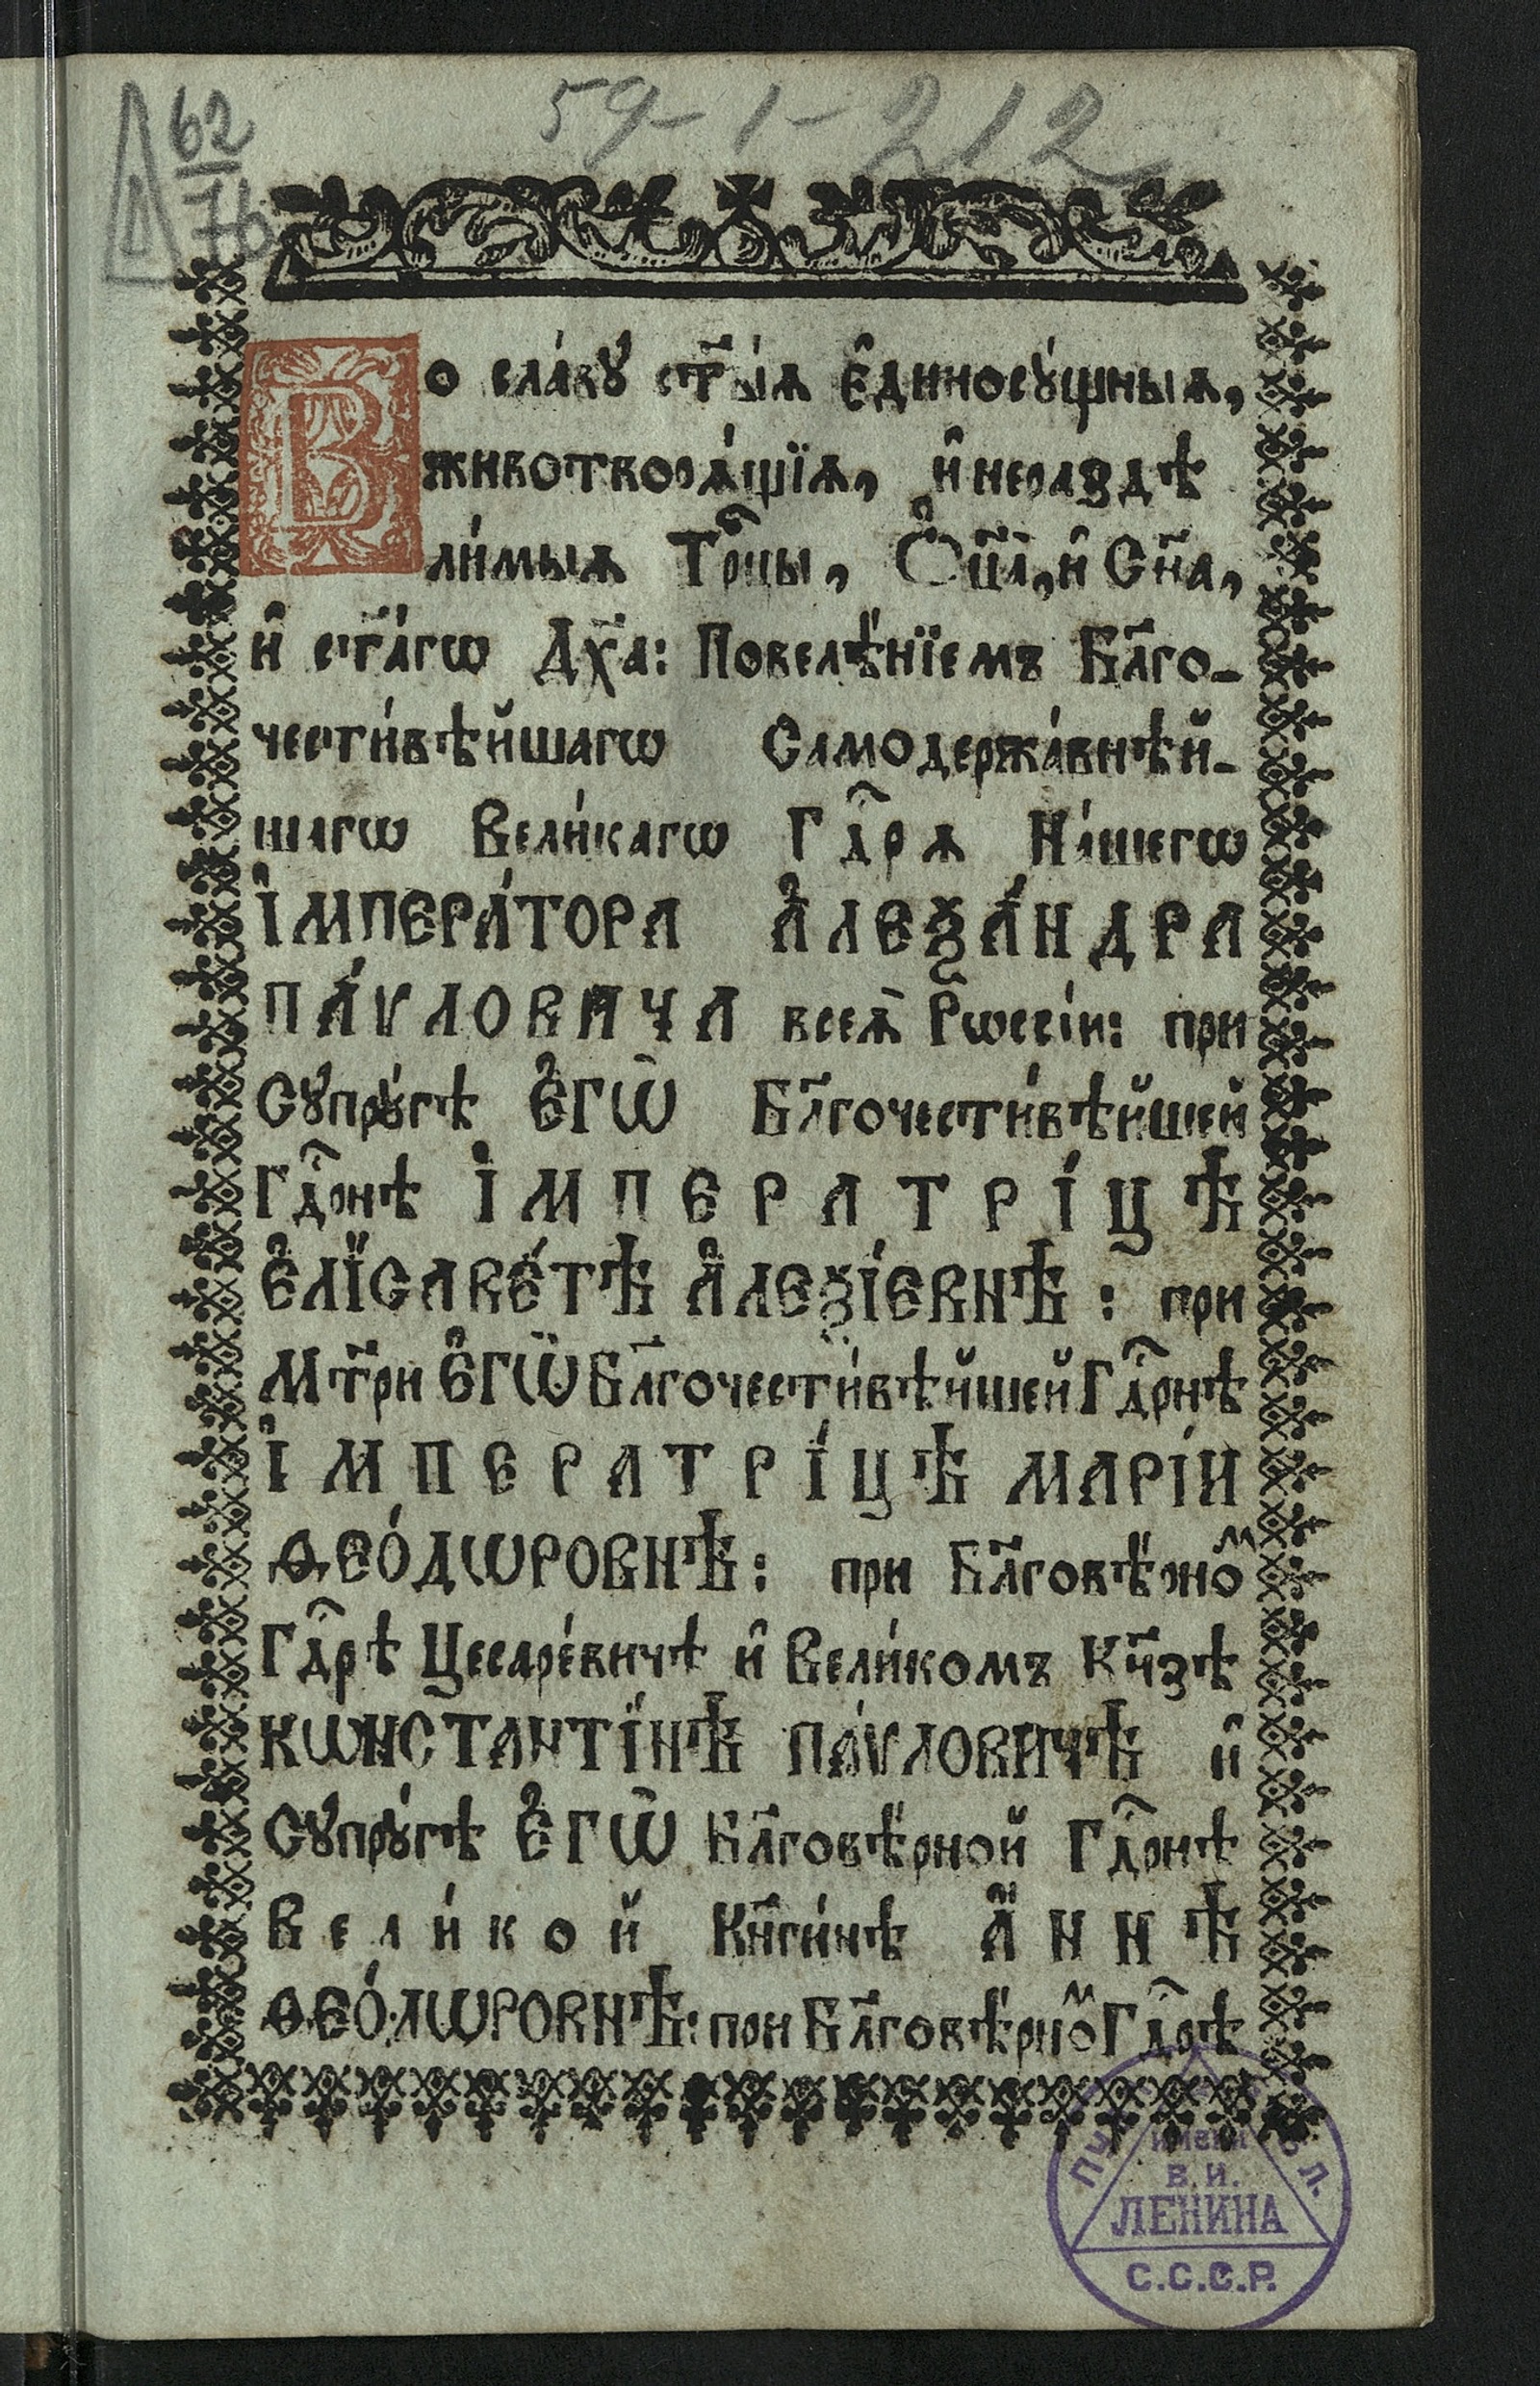 59-1-212
62
76
Во сла́вꙋ ст҃ы́ѧ є҆диносꙋ́щныѧ,
животворѧ́щїѧ, и҆ неразд​ѣ
ли́мыѧ Трⷪ҇цы, Ѻ҆ц҃а̀, и҆ Сн҃а,
и҆ ст҃а́гѡ Дх҃а: Повелѣ́нїемъ Бл҃го-
чести́вѣйшагѡ Самодержа́внѣй-
шагѡ Вели́кагѡ Гдⷭ҇рѧ На́шегѡ
І҆МПЕРА́ТОРА А҆ЛЕѮА́НДРА
ПА́ѴЛОВИЧА всеѧ̀ Рѡссі́и: при
Сꙋпрꙋ́гѣ Є҆ГѠ̀ Бл҃гочести́вѣйшей
Гдⷭ҇рнѣ І҆МПЕРАТРІ́ЦѢ
Є҆ЛІСАВЕ́ТѢ А҆ЛЕѮІ́ЕВНѢ: при
Мт҃ри Є҆ГѠ̀ Бл҃гочести́вѣйшей Гдⷭ҇рнѣ
І҆МПЕРАТРІ́ЦѢ МАРІ́И
ѲЕО́ДѠРОВНѢ: при Бл҃говѣ́рноⷨ
Гдⷭ҇рѣ Цесаре́вичѣ и҆ Вели́комъ Кн҃зѣ
КѠНСТАНТІ́НѢ ПА́ѴЛОВИЧѢ и҆
Сꙋпрꙋ́гѣ Є҆ГѠ̀ Бл҃говѣ́рной Гдⷭ҇рнѣ
Вели́кой Кн҃ги́нѣ А҆́ННѢ
ѲЕО́ДѠРОВНѢ: при Бл҃говѣ́рноⷨ Гдⷭ҇рѣ
имени
В. И.
ЛЕНИНА
С.С.С.Р.